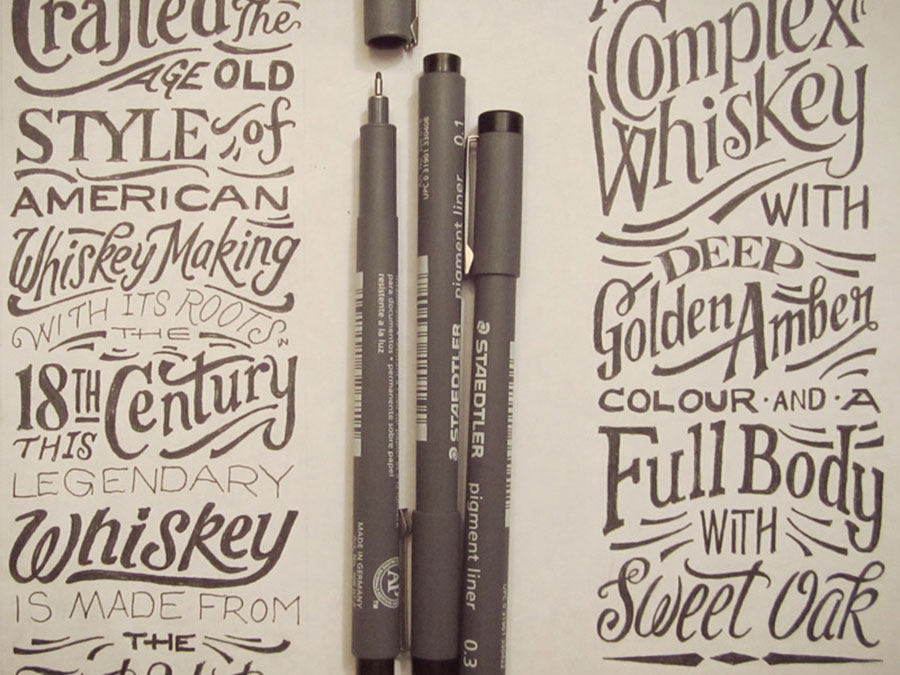 Crafted the
AGE OLD
STYLE of
AMERICAN
Whiskey Making
WITH ITS ROOTS IN
THE
18TH Century
THIS
LEGENDARY
Whiskey
IS MADE FROM
THE
Complex
Whiskey
WITH
DEEP
Golden Amber
COLOUR · AND · A
Full Body
WiTH
Sweet Oak
para documentos • permanente sobre papel
resistente a la luz
MADE IN GERMANY
AP
TM
UPC 0 31901 330408
STAEDTLER pigment liner 0.1
STAEDTLER pigment liner 0.3